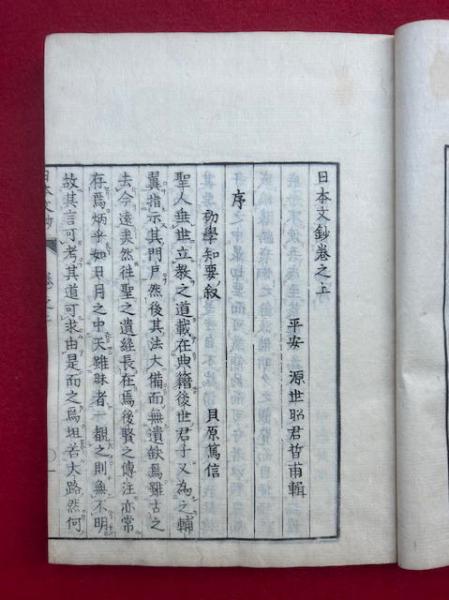 日本文鈔卷之上
平安 源世昭君哲甫輯
序
初學知要叙
貝原篤信
聖人垂世立教之道載在典籍後世君子又為之輔
翼指示其門戸然後其法大備而無遺欤焉雖古之
去今遠矣然往聖之遺經長在焉後賢之傳注亦常
存焉炳乎如日月之中天雖昧者一覩之則無不明
故其言可考其道可求由是而之焉坦若大路然何
日本文鈔